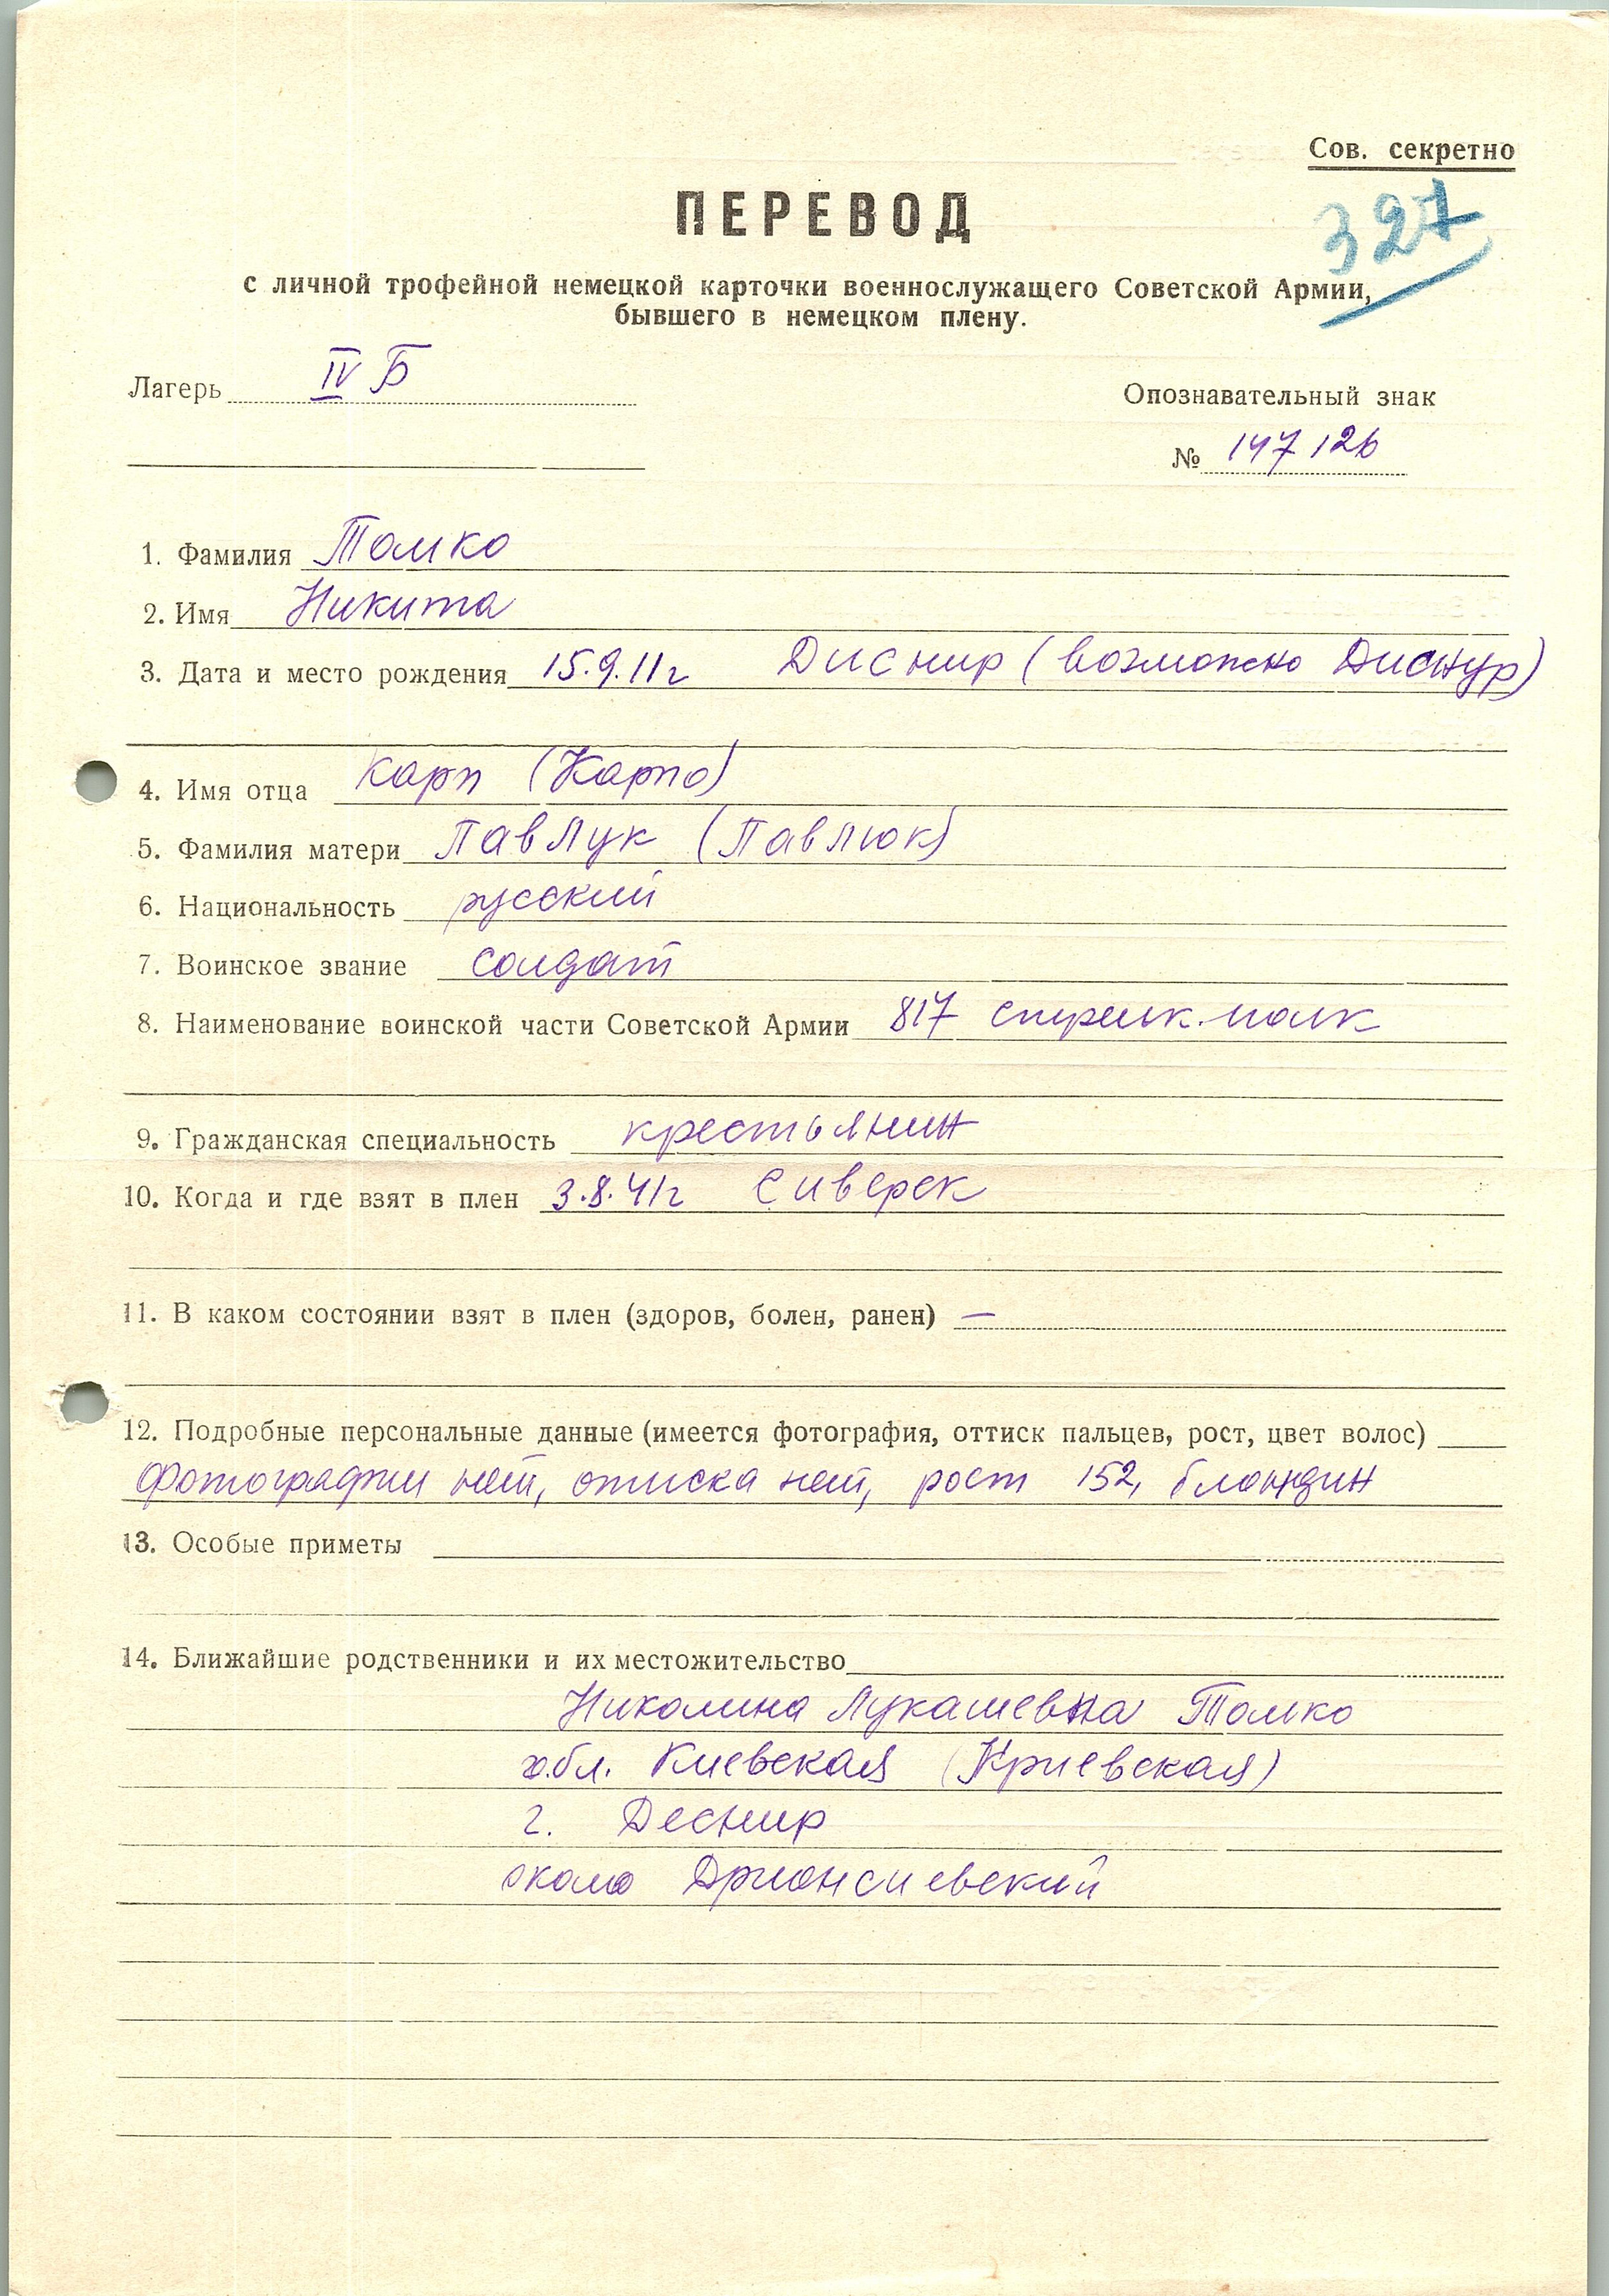 Сов. секретно
327
ПЕРЕВОД
с личной трофейной немецкой карточки военнослужащего Советской Армии,
бывшего в немецком плену.
Лагерь IV Б
Опознавательный знак
№ 147126
1. Фамилия Томко
2. Имя Никита
3. Дата и место рождения 15.9.11г Диснир (возможно Диснур)
4. Имя отца Карп (Карпо)
5. Фамилия матери Павлук (Павлюк)
6. Национальность русский
7. Воинское звание солдат
8. Наименование воинской части Советской Армии 817 стрелк. полк
9. Гражданская специальность крестьянин
10. Когда и где взят в плен 3.8.41г Сиверск
11. В каком состоянии взят в плен (здоров, болен, ранен) —
12. Подробные персональные данные (имеется фотография, оттиск пальцев, рост, цвет волос)
фотографии нет, оттиска нет, рост 152, блондин
13. Особые приметы
14. Ближайшие родственники и их местожительство
Николина Лукашевна Томко
обл. Киевская (Криевская)
г. Деснир
около Дрионсиевский